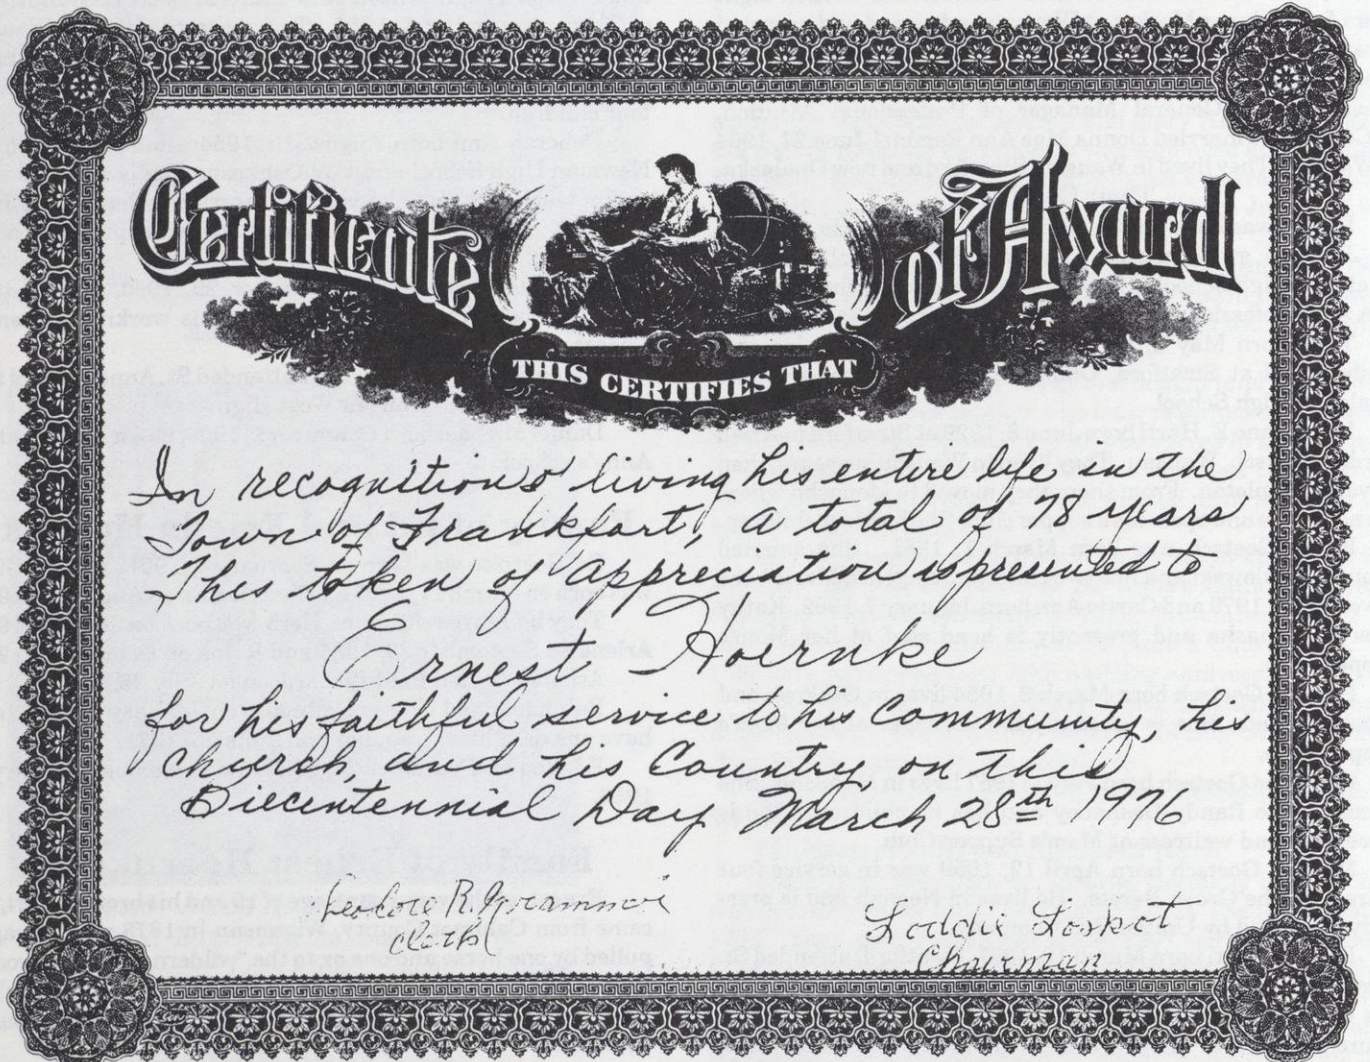 Certificate of Award
THIS CERTIFIES THAT
In recognition of living his entire life in the
Town of Frankfort, A total of 78 years
This token of appreciation is presented to
Ernest Hoernke
for his faithful service to his Community, his
Church, and his Country, on this
Bicentennial Day March 28th 1976
Theodore R.
Clerk
Loddie Loskot
Chairman